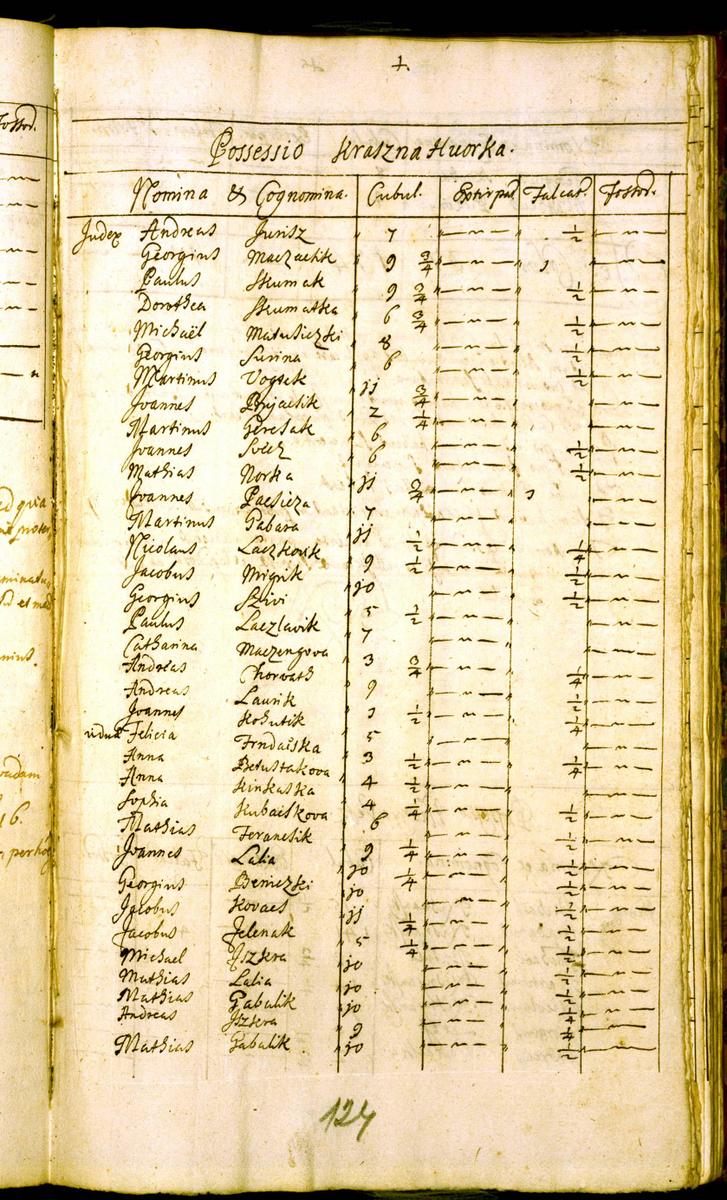 1.
Possessio Kraszna Huorka.
Nomina & Cognomina. Cubul. Extirpat Falcat. Fossor.
Judex Andreas Jurisz 7 " — ½ " —
Georgius Maczaelik 9 ¾ " — 1 " —
Paulus Skumak 9 ¾ " — ½ " —
Dorothea Skumatka 6 ¾ " — ½ " —
Michaël Matusiczki 8 " — ½ " —
Georgius Surina 6 " — ½ " —
Martinus Vogsek jj ¾ " — " —
Joannes Prjaelik 2 ¼ " — " —
Martinus Geresak 6 " — ½ " —
Joannes Svecz 6 " — ½ " —
Mathias Norka jj ¾ " — 1 " —
Joannes Paesicza 7 " — " —
Martinus Gabara jj ½ " — " —
Nicolaus Laczkovik 9 ½ " — ¼ " —
Jacobus Mignik jo " — ½ " —
Georgius Szlivi 5 ½ " — ½ " —
Paulus Laczlavik 7 " — " —
Catharina Maczengova 3 ¾ " — " —
Andreas Chorvath 9 " — ¼ " —
Andreas Laurik 3 ½ " — ½ " —
Joannes Kohutik 5 " — ¼ " —
vidua Felicia Frndaiska 3 ½ " — " —
Anna Betustakova 4 ½ " — ¼ " —
Anna Kinkaska 4 ¼ " — " —
Sophia Kubaiskova 6 " — ½ " —
Mathias Feranesik 9 ¼ " — ½ " —
Joannes Lalia jo ¼ " — ½ " —
Georgius Beniczki jo " — ½ " —
Jacobus Kovacs jj ¼ " — ½ " —
Jacobus Jelenak 5 ¼ " — ½ " —
Michael Jszkra jo " — ½ " —
Mathias Lalia jo " — ½ " —
Mathias Gabulik jo " — ½ " —
Andreas Jszkra 9 " — ¼ " —
Mathias Gabulik jo " — ½ " —
124